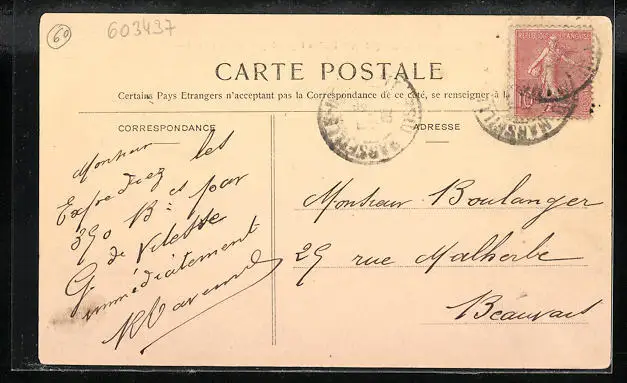 60
603437
RÉPUBLIQUE FRANÇAISE
10
CARTE POSTALE
Certains Pays Etrangers n'acceptant pas la Correspondance de ce côté, se renseigner à la
CORRESPONDANCE
ADRESSE
MARSEILLE
MARSEILLE
Monsieur
Expédiez les
390 Bies par
G de Vitesse
immédiatement
Monsieur Boulanger
29 rue Malherbe
Beauvais